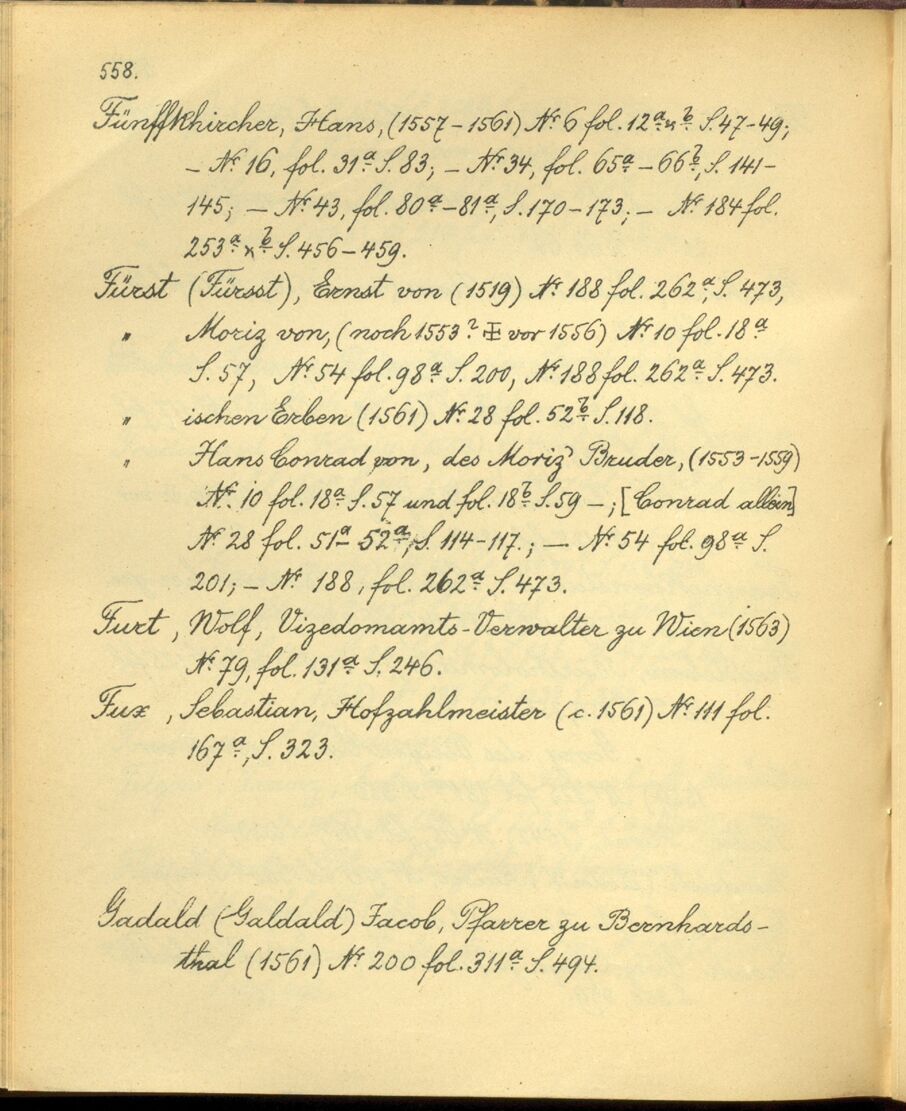 558.
Fünffkhircher, Hans, (1557 – 1561) Nr. 6 fol. 12a u b S. 47-49;
– Nr. 16, fol. 31a S. 83; – Nr. 34, fol. 65a – 66b, S. 141-
145; – Nr. 43, fol. 80a – 81a, S. 170 – 173; – Nr. 184 fol.
253a u b S. 456 – 459.
Fürst (Fürsst), Ernst von (1519) Nr. 188 fol. 262a, S. 473,
" Moriz von, (noch 1553? ‡ vor 1556) Nr. 10 fol. 18a
S. 57, Nr. 54 fol. 98a S. 200, Nr. 188 fol. 262a S. 473.
" ischen Erben (1561) Nr. 28 fol. 52b S. 118.
" Hans Conrad von, des Moriz' Bruder, (1553 – 1559)
Nr. 10 fol. 18a S. 57 und fol. 18b S. 59 –; [Conrad allein]
Nr. 28 fol. 51a – 52a, S. 114-117.; – Nr. 54 fol. 98a S.
201; – Nr. 188, fol. 262a S. 473.
Furt, Wolf, Vizedomamts-Verwalter zu Wien (1563)
Nr. 79, fol. 131a S. 246.
Fux, Sebastian, Hofzahlmeister (c. 1561) Nr. 111 fol.
167a, S. 323.
Gadald (Galdald) Jacob, Pfarrer zu Bernhards-
thal (1561) Nr. 200 fol. 311a S. 494.